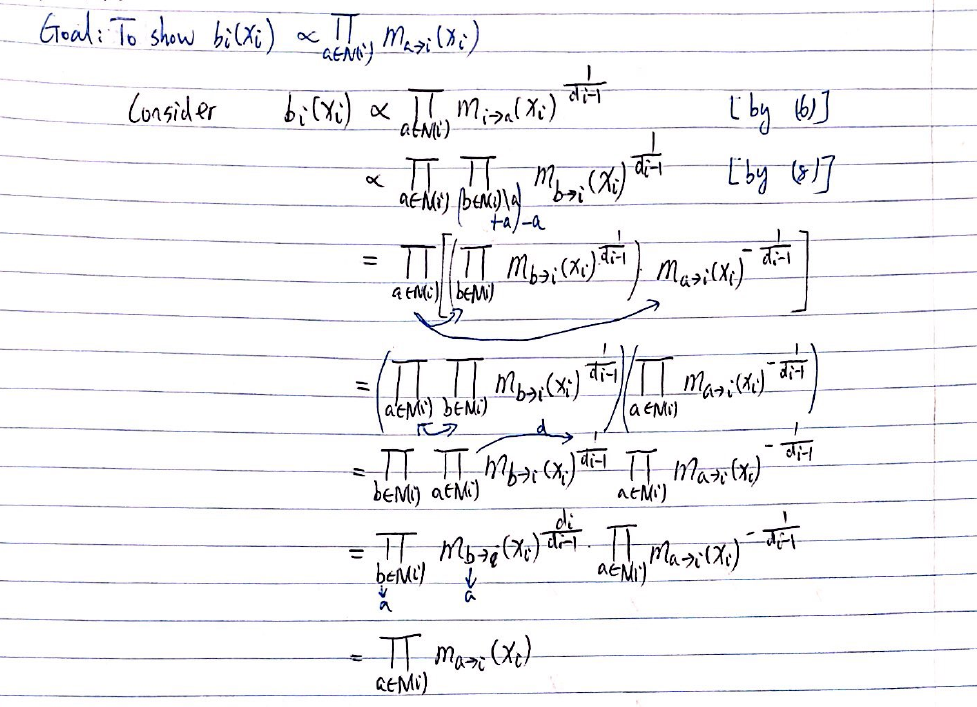 Goal: To show bᵢ(xᵢ) ∝ ∏_{a∈N(i)} m_{a→i}(xᵢ)
Consider bᵢ(xᵢ) ∝ ∏_{a∈N(i)} m_{i→a}(xᵢ)^{1/(dᵢ-1)} [by (6)]
∝ ∏_{a∈N(i)} ∏_{(b∈N(i)\a)+a)-a} m_{b→i}(xᵢ)^{1/(dᵢ-1)} [by (8)]
= ∏_{a∈N(i)} [(∏_{b∈N(i)} m_{b→i}(xᵢ)^{1/(dᵢ-1)}) · m_{a→i}(xᵢ)^{-1/(dᵢ-1)}]
= (∏_{a∈N(i)} ∏_{b∈N(i)} m_{b→i}(xᵢ)^{1/(dᵢ-1)}) (∏_{a∈N(i)} m_{a→i}(xᵢ)^{-1/(dᵢ-1)})
d
= ∏_{b∈N(i)} ∏_{a∈N(i)} m_{b→i}(xᵢ)^{1/(dᵢ-1)} ∏_{a∈N(i)} m_{a→i}(xᵢ)^{-1/(dᵢ-1)}
= ∏_{b∈N(i)} m_{b→i}(xᵢ)^{dᵢ/(dᵢ-1)} · ∏_{a∈N(i)} m_{a→i}(xᵢ)^{-1/(dᵢ-1)}
↓ ↓
a a
= ∏_{a∈N(i)} m_{a→i}(xᵢ)